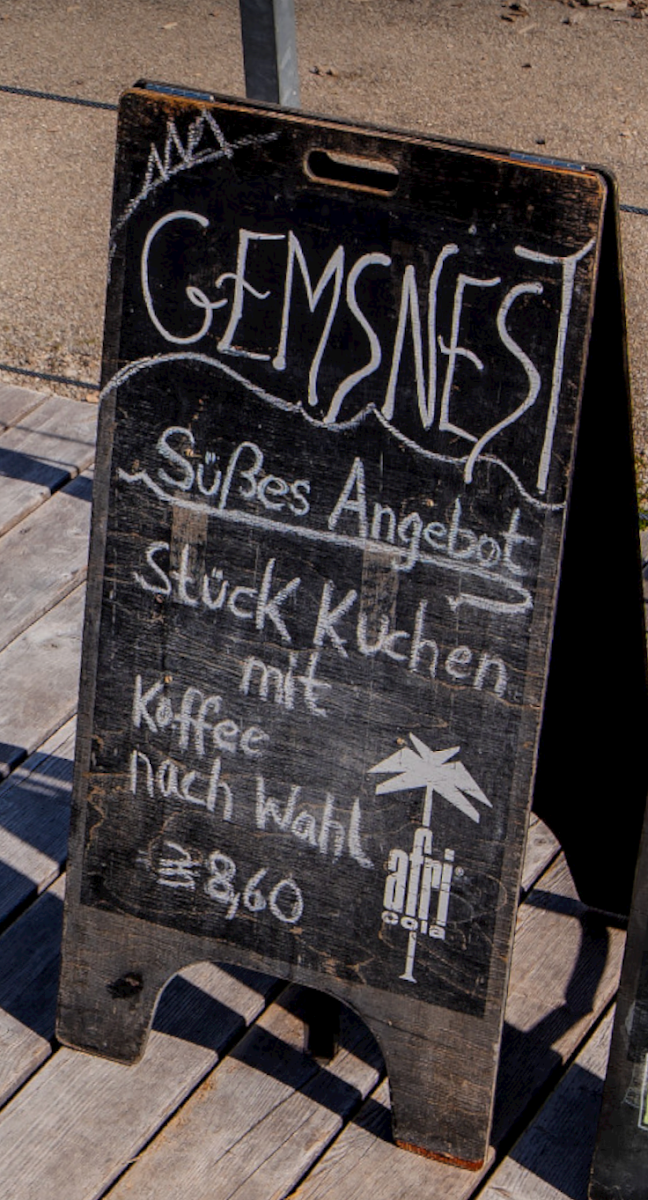 GEMSNEST
Süßes Angebot
Stück Kuchen
mit
Kaffee
nach Wahl
8,60
afri
cola